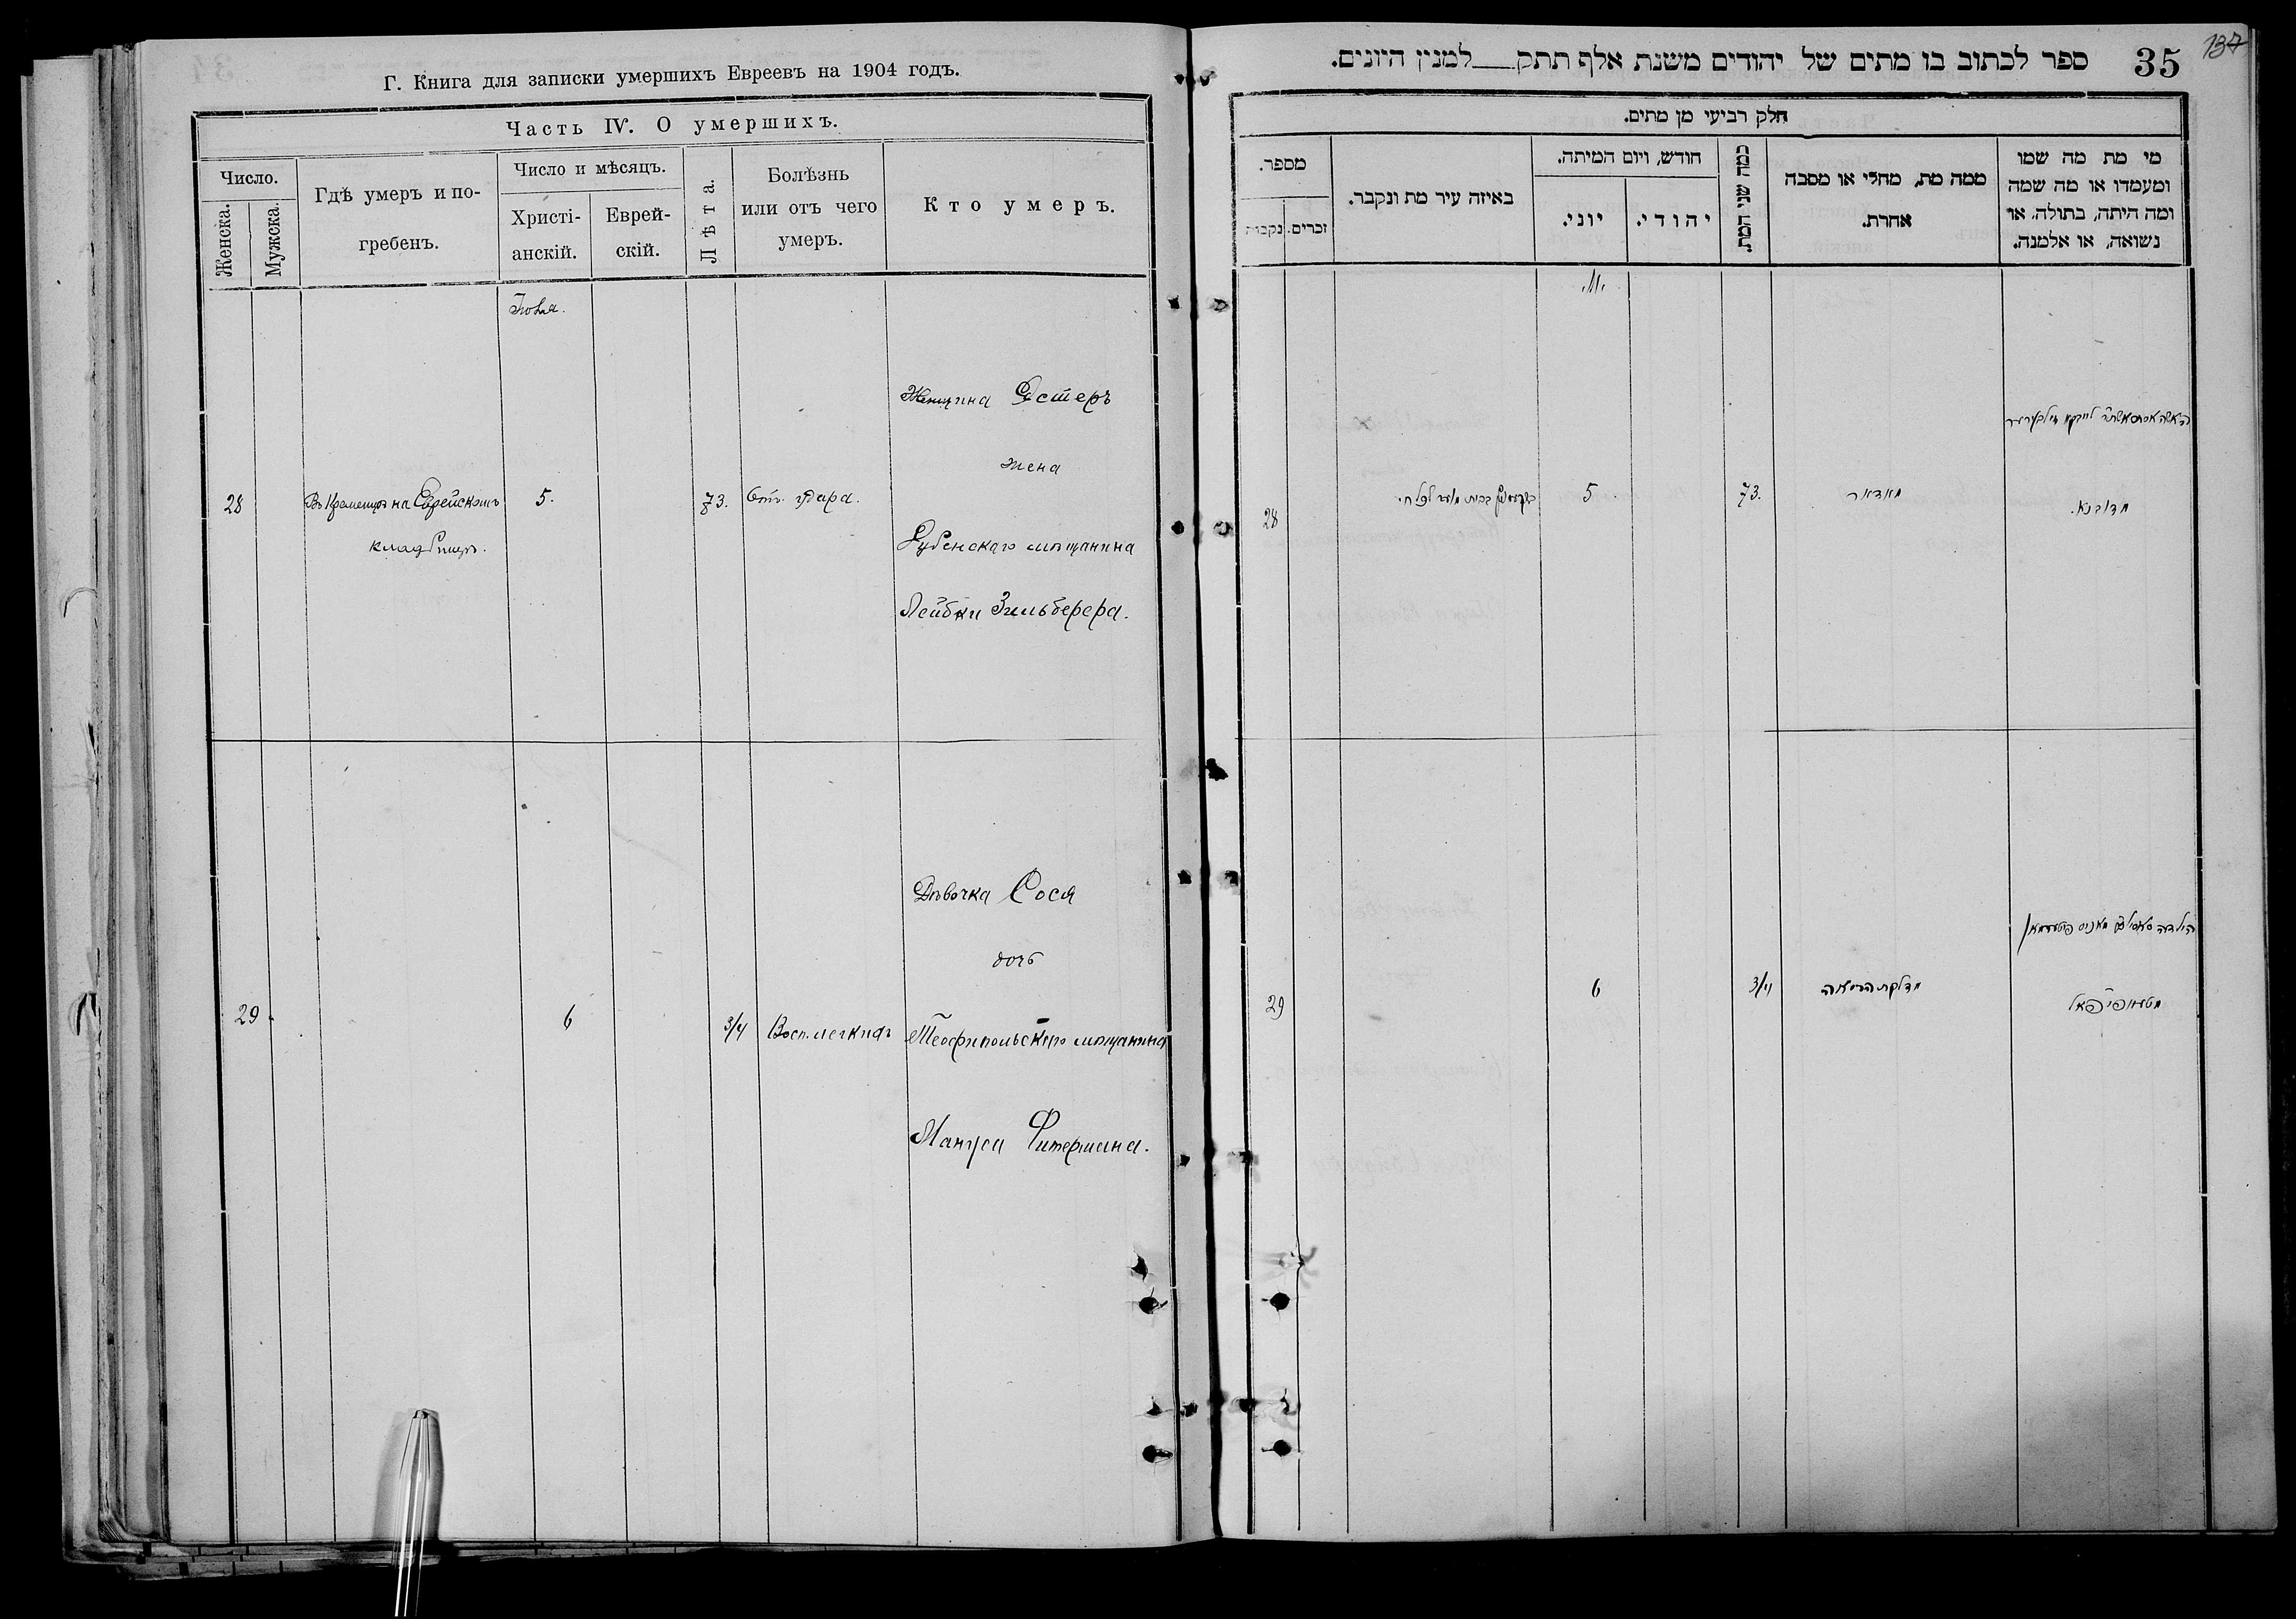 Г. Книга для записки умершихъ Евреевъ на 1904 годъ.
Часть IV. О умершихъ.
Число.
Женска.
Мужска.
Гдѣ умеръ и по-
гребенъ.
Число и мѣсяцъ.
Христі-
анскій.
Еврей-
скій.
Лѣта.
Болѣзнь
или отъ чего
умеръ.
Кто умеръ.
Женщина Эстеръ
жена
28 Въ Кременцѣ на Еврейскомъ 5. 73. Отъ удара.
кладбищѣ.
мѣщанина
Лейбки Зильберера.
Дѣвочка Сося
дочь
29 6 3/4 Восп. легкихъ Теофипольскаго мѣщанина
Мануса Фитермана.
35
137
ספר לכתוב בו מתים של יהודים משנת אלף תתק למנין היונים.
חלק רביעי מן מתים.
מספר.
נקבות
זכרים.
באיזה עיר מת ונקבר.
חודש, ויום המיתה.
יוני.
יהודי.
כמה שני המת.
ממה מת, מחלי או מסבה
אחרת.
מי מת מה שמו
ומעמדו או מה שמה
ומה היתה, בתולה, או
נשואה, או אלמנה.
28 5 73.
29 6 3/4